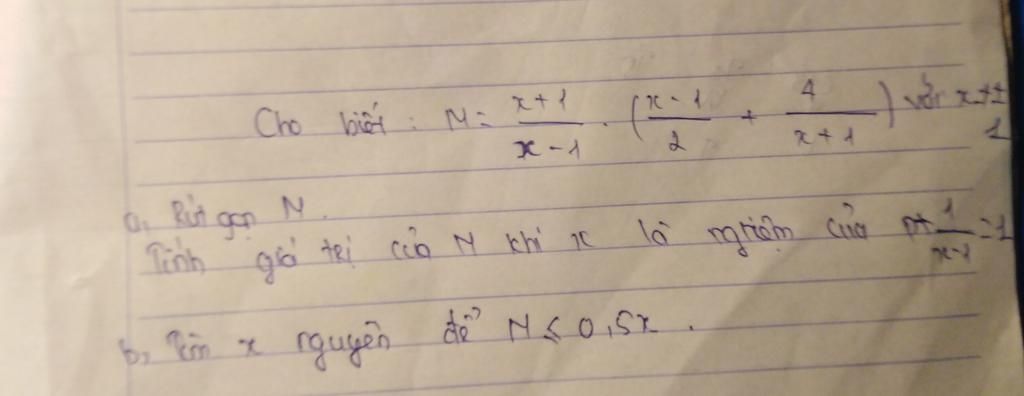 Cho biết : N = \frac{x+1}{x-1} . ( \frac{x-1}{2} + \frac{4}{x+1} ) với x ≠ ± 1
a, Rút gọn N .
Tính giá trị của N khi x là nghiệm của pt \frac{1}{x-1} = 1
b, Tìm x nguyên để N ≤ 0,5x .